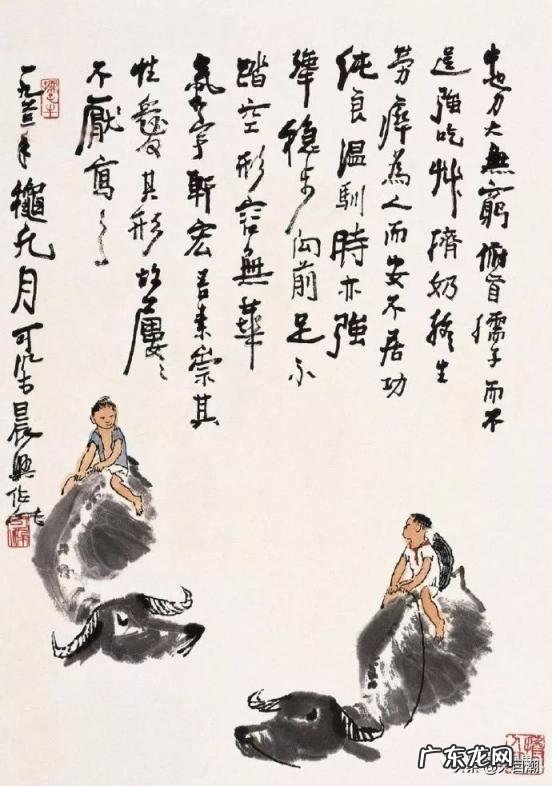 牛也力大無窮俯首孺子而不
逞強吃艸擠奶終生
勞瘁為人而安不居功
純良溫馴時亦強
犟穩步向前足不
踏空形容無華
氣宇軒宏吾素崇其
性愛其形故屢〻
不厭寫之
一九六三年穐九月可染晨興作
广东龙网